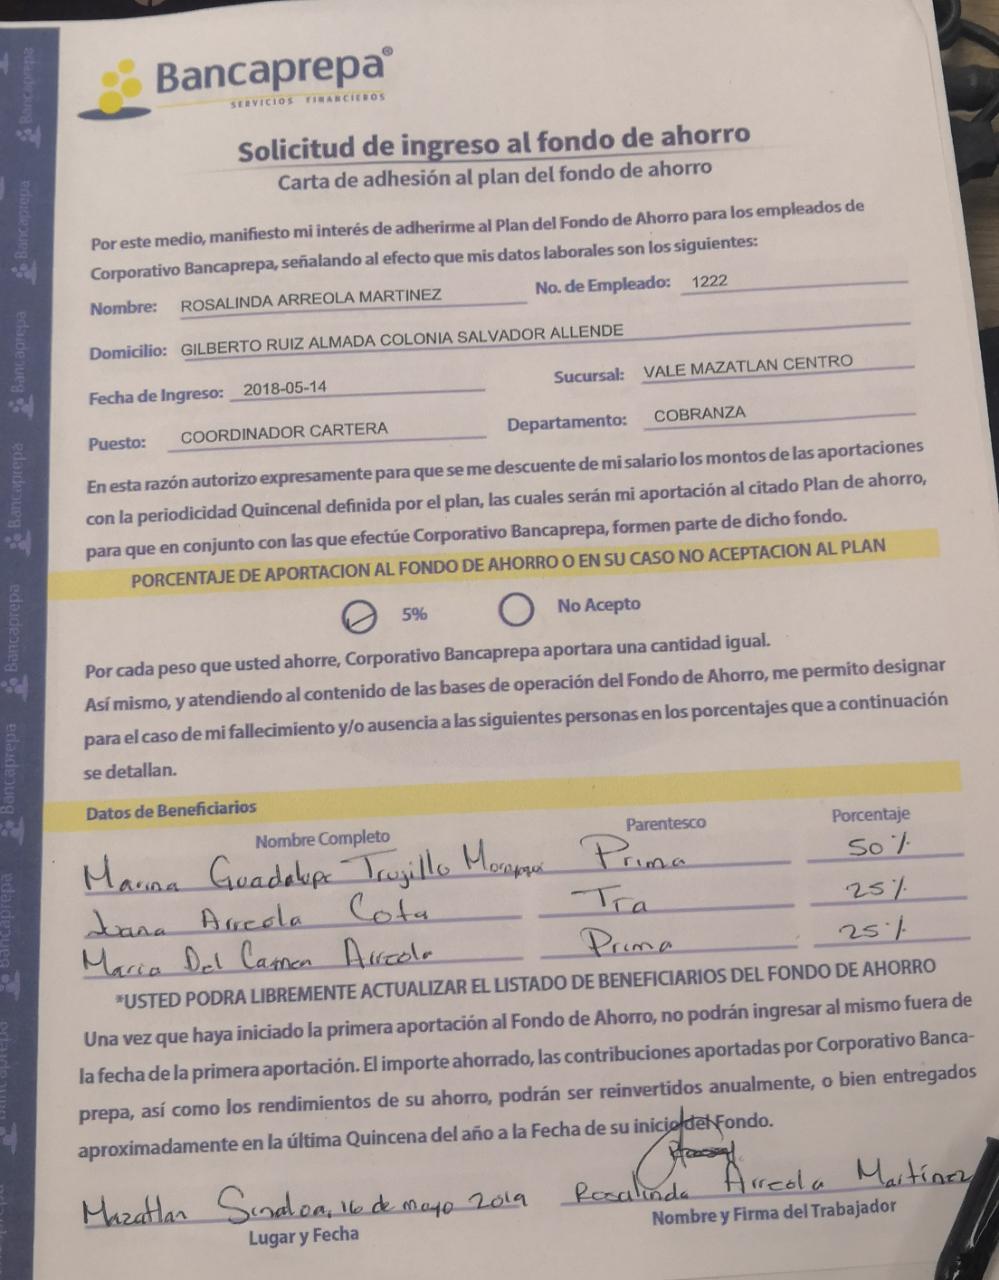 Bancaprepa®
SERVICIOS FINANCIEROS
Solicitud de ingreso al fondo de ahorro
Carta de adhesión al plan del fondo de ahorro
Por este medio, manifiesto mi interés de adherirme al Plan del Fondo de Ahorro para los empleados de
Corporativo Bancaprepa, señalando al efecto que mis datos laborales son los siguientes:
Nombre: ROSALINDA ARREOLA MARTINEZ No. de Empleado: 1222
Domicilio: GILBERTO RUIZ ALMADA COLONIA SALVADOR ALLENDE
Fecha de Ingreso: 2018-05-14 Sucursal: VALE MAZATLAN CENTRO
Puesto: COORDINADOR CARTERA Departamento: COBRANZA
En esta razón autorizo expresamente para que se me descuente de mi salario los montos de las aportaciones
con la periodicidad Quincenal definida por el plan, las cuales serán mi aportación al citado Plan de ahorro,
para que en conjunto con las que efectúe Corporativo Bancaprepa, formen parte de dicho fondo.
PORCENTAJE DE APORTACION AL FONDO DE AHORRO O EN SU CASO NO ACEPTACION AL PLAN
5% No Acepto
Por cada peso que usted ahorre, Corporativo Bancaprepa aportara una cantidad igual.
Así mismo, y atendiendo al contenido de las bases de operación del Fondo de Ahorro, me permito designar
para el caso de mi fallecimiento y/o ausencia a las siguientes personas en los porcentajes que a continuación
se detallan.
Datos de Beneficiarios
Nombre Completo Parentesco Porcentaje
Marina Guadalupe Trujillo Prima 50%
Arreola Cota Tra 25%
Maria Del Carmen Arreola Prima 25%
*USTED PODRA LIBREMENTE ACTUALIZAR EL LISTADO DE BENEFICIARIOS DEL FONDO DE AHORRO
Una vez que haya iniciado la primera aportación al Fondo de Ahorro, no podrán ingresar al mismo fuera de
la fecha de la primera aportación. El importe ahorrado, las contribuciones aportadas por Corporativo Banca-
prepa, así como los rendimientos de su ahorro, podrán ser reinvertidos anualmente, o bien entregados
aproximadamente en la última Quincena del año a la Fecha de su inicio del Fondo.
Mazatlan Sinaloa, 16 de mayo 2019 Rosalinda Arreola Martínez
Lugar y Fecha Nombre y Firma del Trabajador